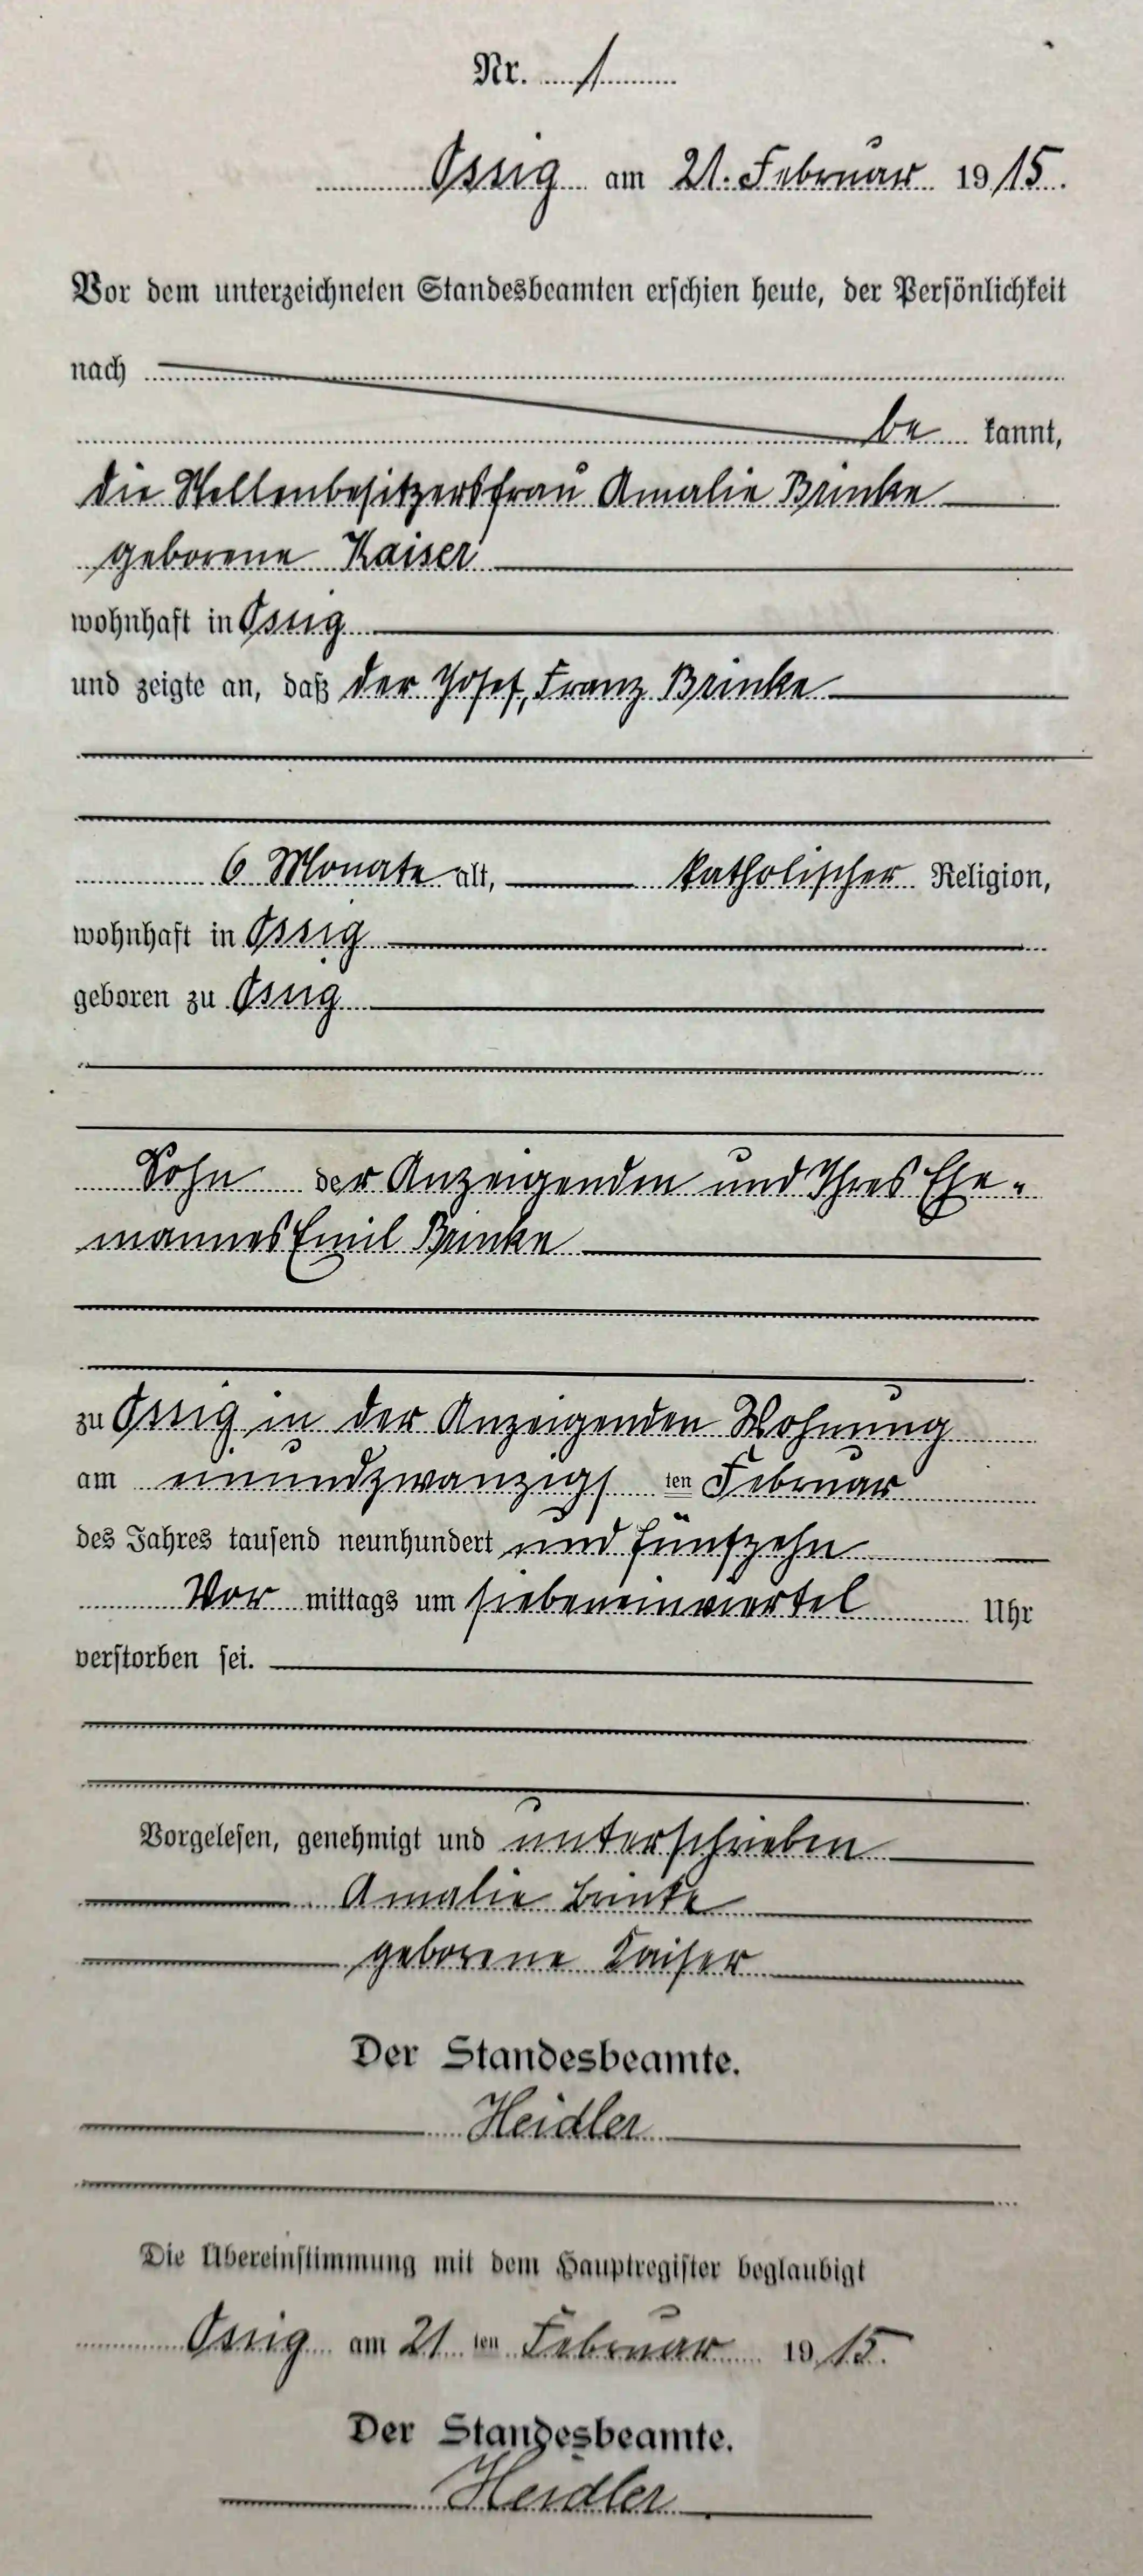 Nr. 1
Ossig am 21. Februar 1915.
Vor dem unterzeichneten Standesbeamten erschien heute, der Persönlichkeit
nach
be kannt,
die Stellenbesitzersfrau Amalie Brinke
geborene Kaiser
wohnhaft in Ossig
und zeigte an, daß der Josef, Franz Brinke
6 Monate alt, katholischer Religion,
wohnhaft in Ossig
geboren zu Ossig
Sohn der Anzeigenden und Ihres Ehe-
mannes Emil Brinke
zu Ossig in der Anzeigenden Wohnung
am einundzwanzigs ten Februar
des Jahres tausend neunhundert und fünfzehn
Vor mittags um siebeneinviertel Uhr
verstorben sei.
Vorgelesen, genehmigt und unterschrieben
Amalie Brinke
geborene Kaiser
Der Standesbeamte.
Heidler
Die Übereinstimmung mit dem Hauptregister beglaubigt
Ossig am 21 ten Februar 1915.
Der Standesbeamte.
Heidler